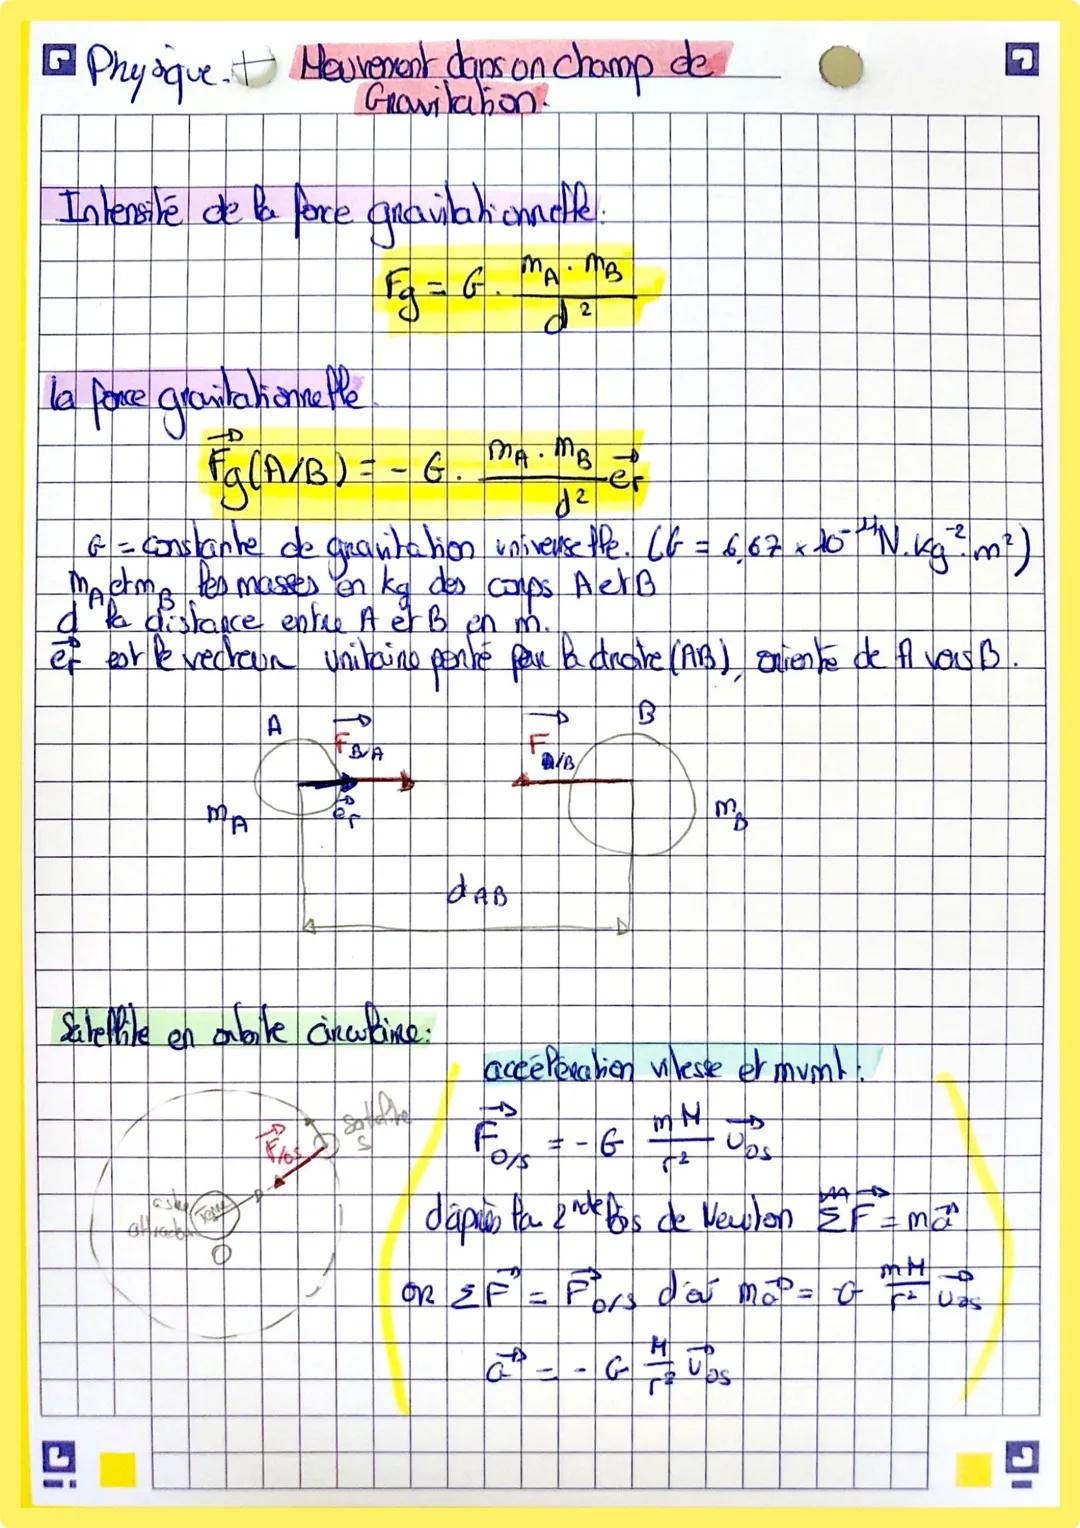 Physique.
Mouvement dans un champ de
Gravitation.
Intensité de la force gravitationnelle:
Fg = G. mA . mB / d²
la force gravitationnelle.
Fg(A/B) = - G. mA . mB / d² er
G = constante de gravitation universelle. (G = 6,67 x 10⁻¹¹ N.kg⁻².m²)
mA et mB les masses en kg des corps A et B
d la distance entre A et B en m.
er est le vecteur unitaire porté par la droite (AB), orienté de A vers B.
A
B
F B/A
F A/B
er
mA
mB
d AB
Satellite en orbite circulaire:
accélération vitesse et mvmt:
satellite
S
F/os
astre
attracteur
Terre
O
F o/s = - G mM / r² Uos
d'après la 2nde lois de Newton ΣF = ma
or ΣF = F o/s d'où ma = -G mM / r² Uos
a = - G M / r² Uos